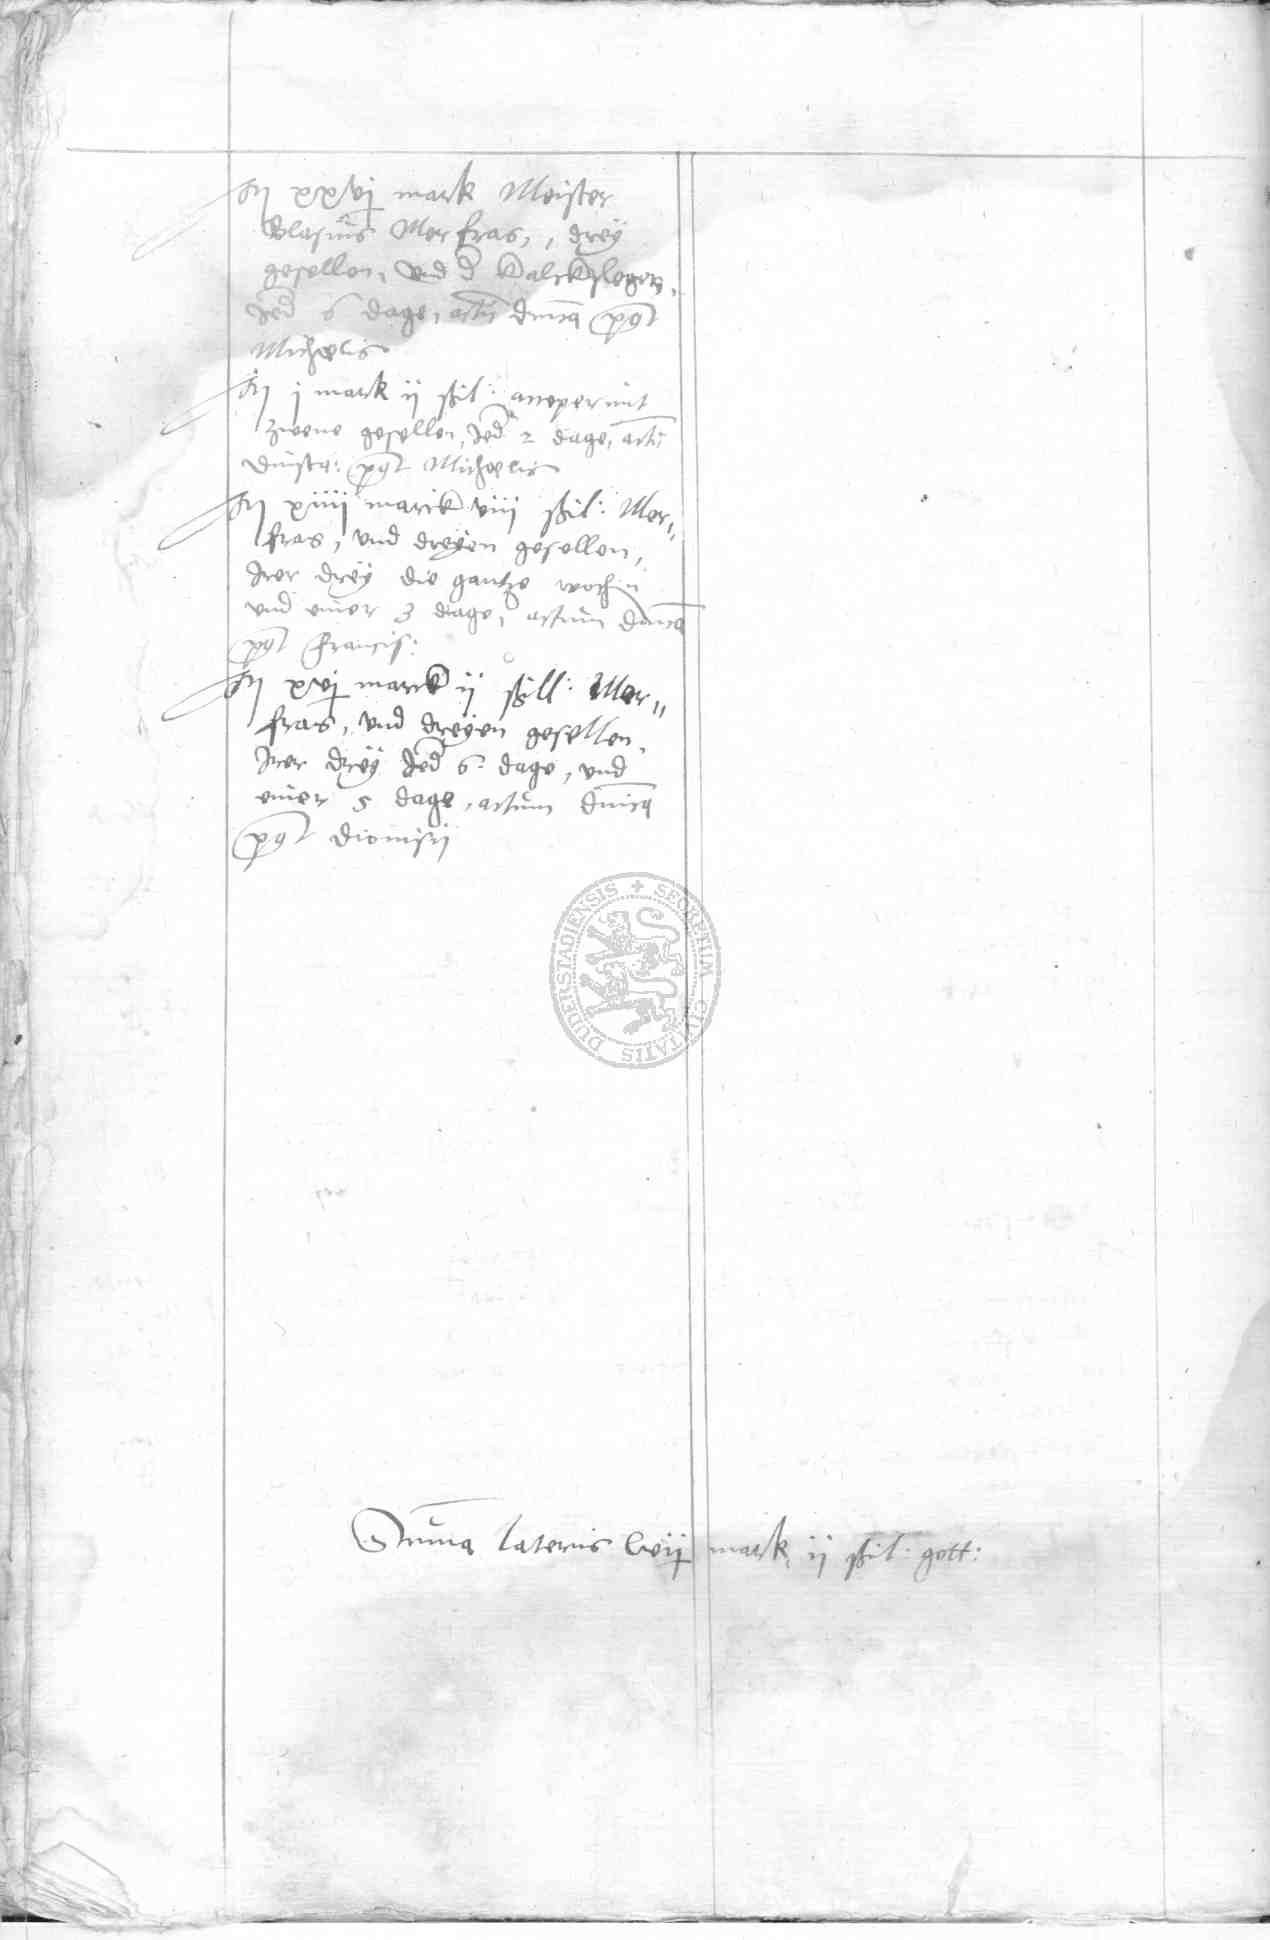 It xxvj mark Meister
Blasius Merfras, drey
gesellen, und d kalcksleger,
Jed 6 dage, actu dnica post
Michaelis
It j mark ij ßil:
zwene gesellen, Jed 2 dage, actu
post Michaelis
It xiiij marck viij ßil: Mer„
fras, und dreyen gesellen,
Irer drey die gantze wochn
und einer 3 dage, actum dnica
post Francis:
It xvj marck ij ßill: Mer„
fras, und dreyen gesellen,
Irer drey Jed 6 dage, und
einer 5 dage, actum dnica
post Dionisij
DUDERSTADIENSIS + SECRETUM CIVITATIS
Suma lateris lvij mark ij ßil: gott: